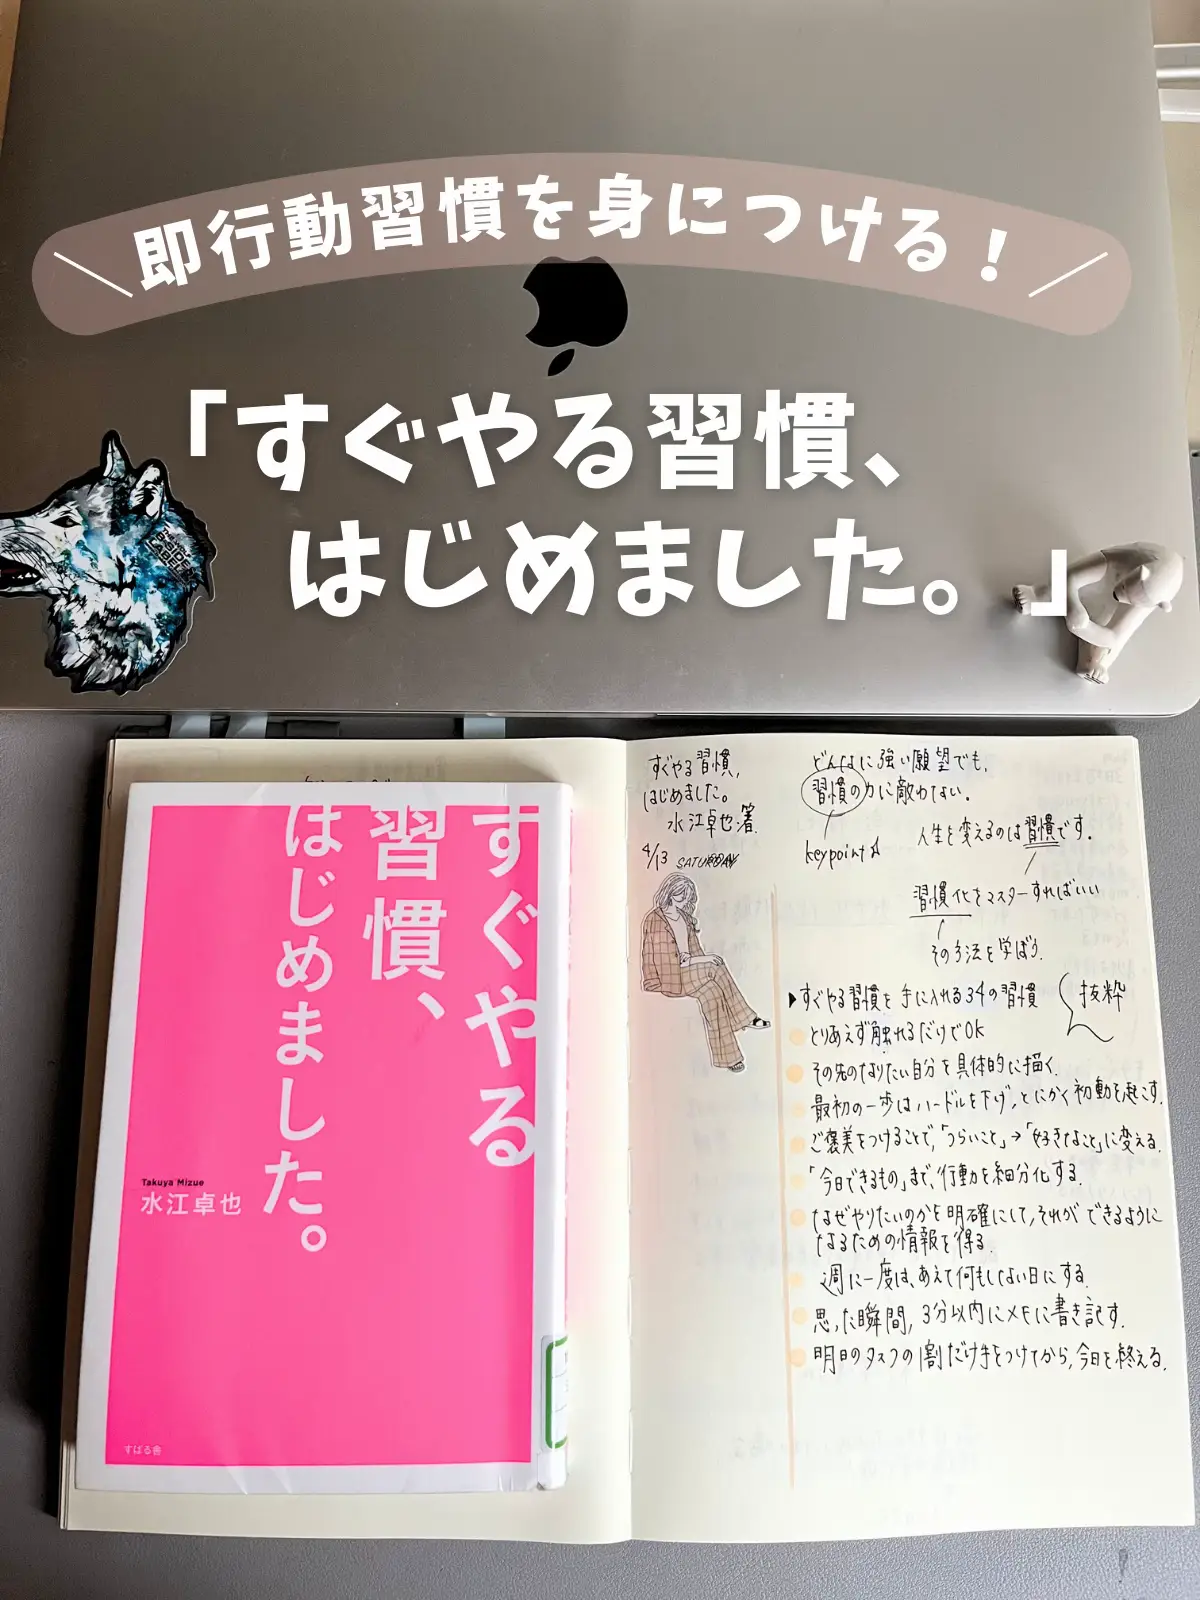 ＼即行動習慣を身につける！／
「すぐやる習慣、
はじめました。」
すぐやる
習慣、
はじめました。
Takuya Mizue
水江卓也
すばる舎
すぐやる習慣,
はじめました。
水江卓也 著.
4/13 SATURDAY
どんなに強い願望でも,
習慣の力に敵わない.
keypoint☆
人生を変えるのは習慣です.
習慣化をマスターすればいい
その方法を学ぼう.
▶すぐやる習慣を手に入れる34の習慣
抜粋
とりあえず触れるだけでOK
その先のなりたい自分を具体的に描く.
最初の一歩はハードルを下げ,とにかく初動を起こす.
ご褒美をつけることで,「つらいこと」→「好きなこと」に変える.
「今日できるもの」まで,行動を細分化する.
なぜやりたいのかを明確にして,それができるように
なるための情報を得る.
週に一度は,あえて何もしない日にする.
思った瞬間, 3分以内にメモに書き記す.
明日のタスクの1割だけ手をつけてから,今日を終える.